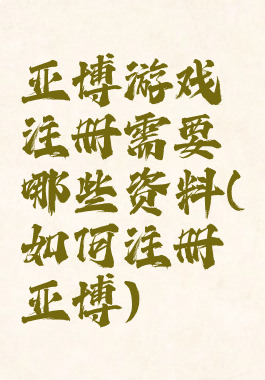 亚博游戏
注册需要
哪些资料(
如何注册
亚博)